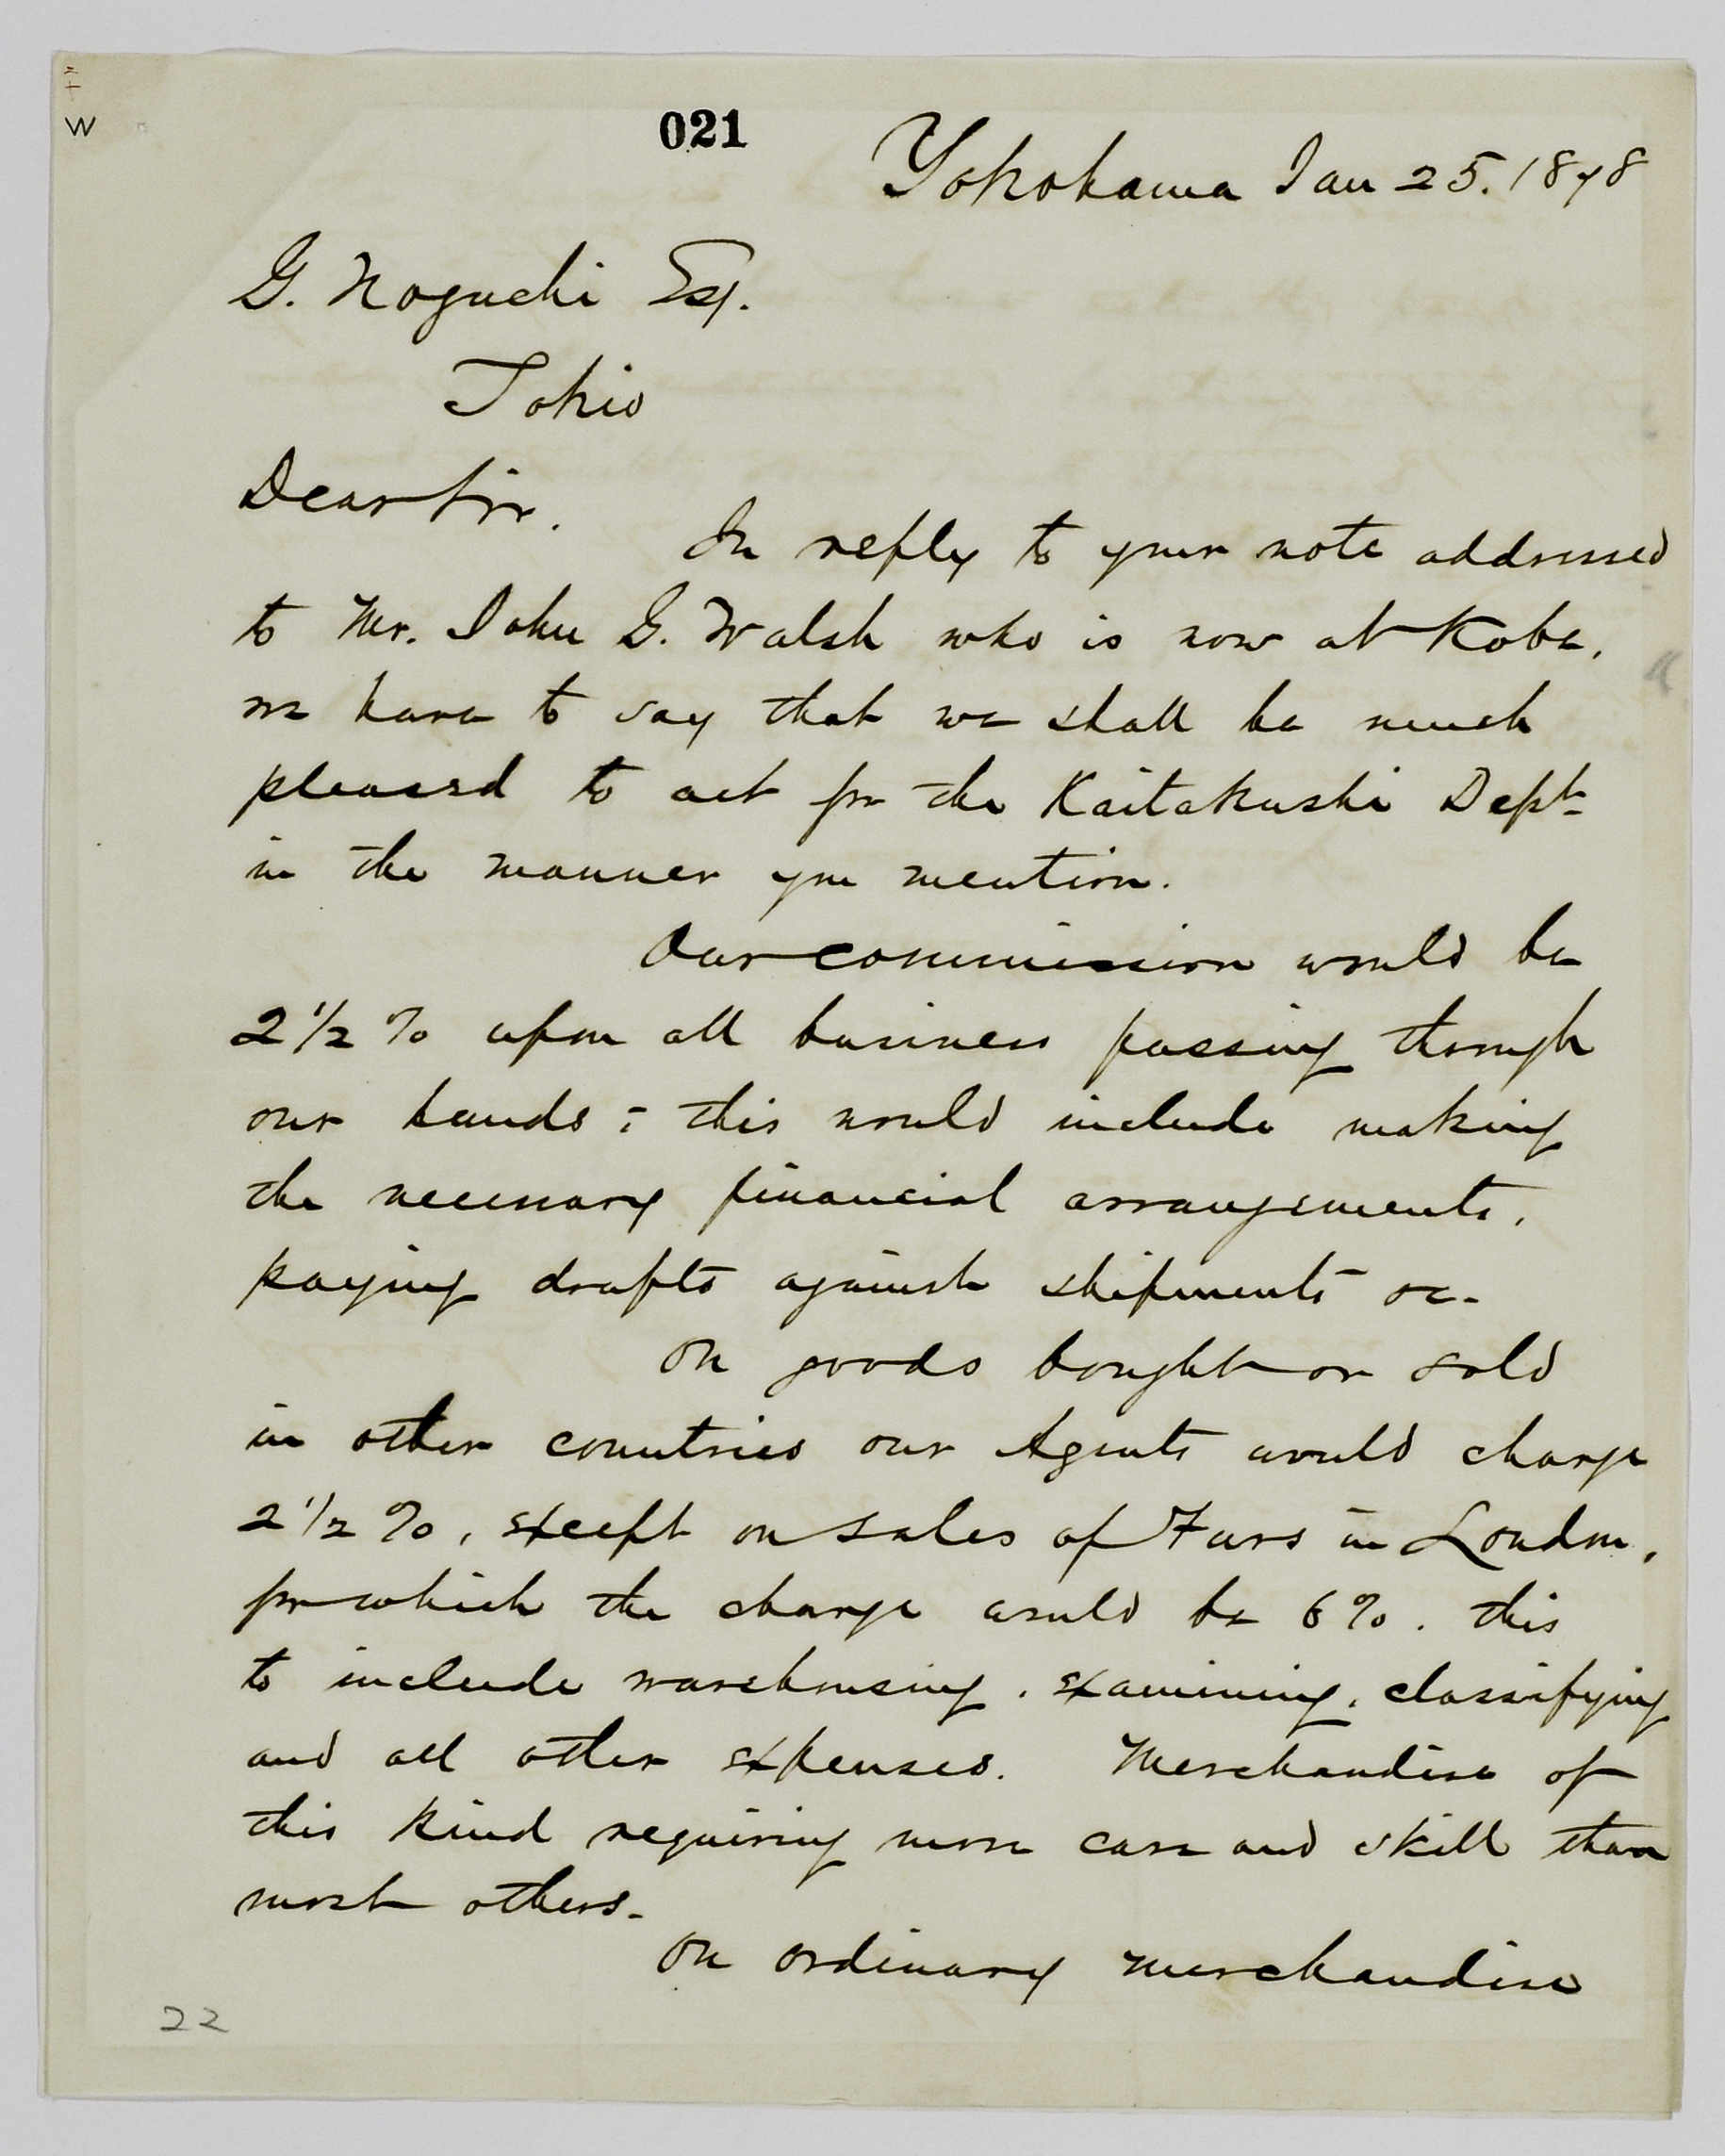 W
021
Yokohama Jan 25. 1878
G. Noguchi Esq.
Tokio
Dear Sir.
In reply to your note addressed
to Mr. John G. Walsh who is now at Kobe,
we have to say that we shall be much
pleased to act for the Kaitakushi Dept.
in the manner you mention.
Our commission would be
2 1/2 % upon all business passing through
our hands; this would include making
the necessary financial arrangements,
paying drafts against shipments &c.
On goods bought or sold
in other countries our Agents would charge
2 1/2 %, except on sales of Furs in London,
for which the charge would be 6%. this
to include warehousing, examining, classifying
and all other expenses. Merchandise of
this kind requiring more care and skill than
most others.
On ordinary merchandise
22